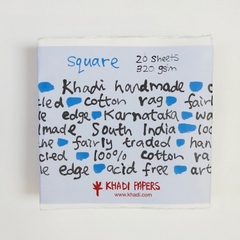 square 20 sheets
320 gsm
Khadi handmade
cotton rag
edge Karnataka
made South India
the fairly traded
100% cotton ra
e edge acid free art
KHADI PAPERS
www.khadi.com